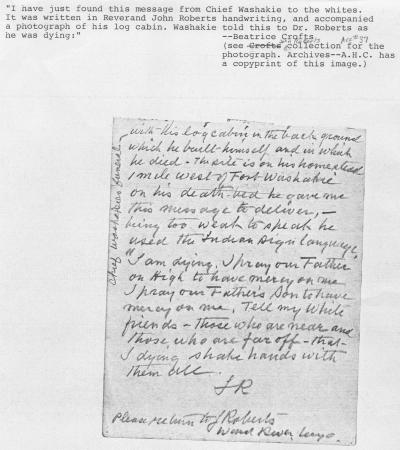 "I have just found this message from Chief Washakie to the whites.
It was written in Reverand John Roberts handwriting, and accompanied
a photograph of his log cabin. Washakie told this to Dr. Roberts as
he was dying:"
--Beatrice Crofts
(see Crofts collection for the
photograph. Archives--A.H.C. has
a copyprint of this image.)
with his log cabin in the back ground
which he built himself and in which
he died - the site is on his homestead
1 mile west of Fort Washakie
on his death bed he gave me
this message to deliver, -
being too weak to speak he
used the Indian Sign language,
"I am dying, I pray our Father
on High to have mercy on me
I pray our Father's Son to have
mercy on me. Tell my White
friends - those who are near and
those who are far off - that -
I dying shake hands with
them all.
JR
Please return to J Roberts
Wind River, Wyo.
Chief Washakies funeral